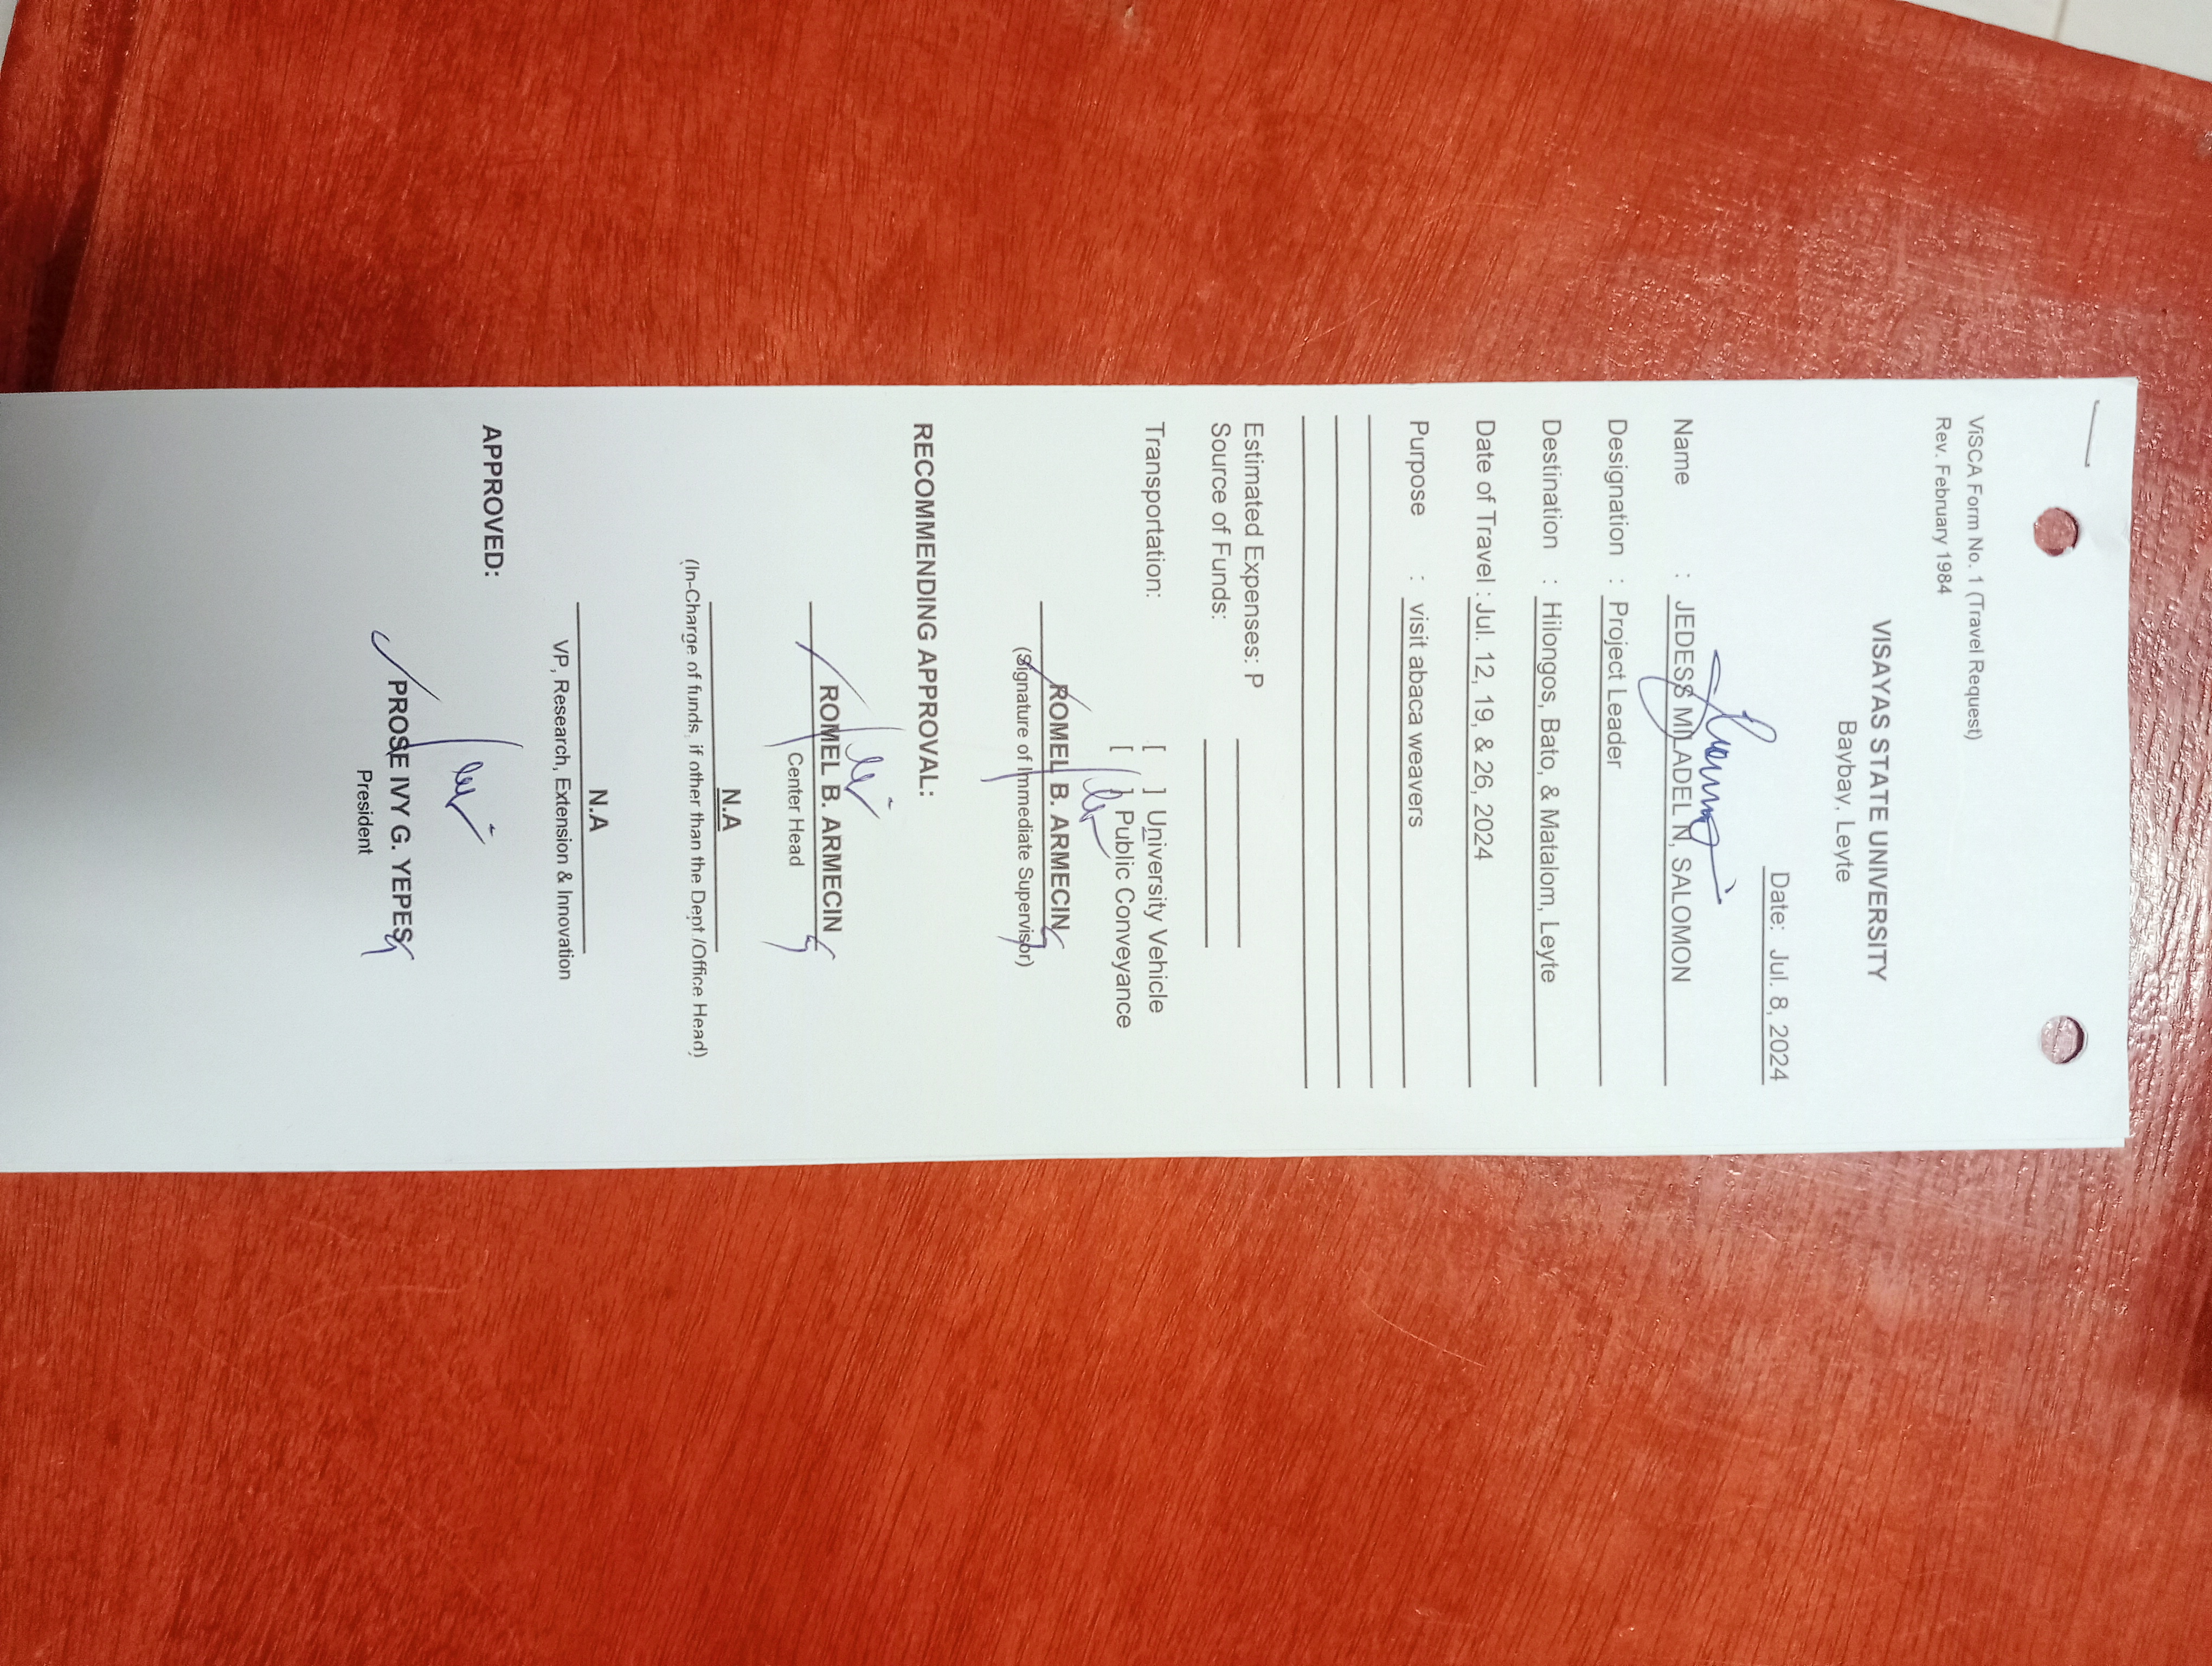 ViSCA Form No. 1 (Travel Request)
Rev. February 1984
VISAYAS STATE UNIVERSITY
Baybay, Leyte
Date: Jul. 8, 2024
Name : JEDESS MILADEL N, SALOMON
Designation : Project Leader
Destination : Hilongos, Bato, & Matalom, Leyte
Date of Travel : Jul. 12, 19, & 26, 2024
Purpose : visit abaca weavers
Estimated Expenses: P
Source of Funds:
Transportation: [ ] University Vehicle
[ ] Public Conveyance
ROMEL B. ARMECIN
(Signature of Immediate Supervisor)
RECOMMENDING APPROVAL:
ROMEL B. ARMECIN
Center Head
N.A
(In-Charge of funds, if other than the Dept./Office Head)
N.A
VP, Research, Extension & Innovation
APPROVED:
PROSE IVY G. YEPES
President